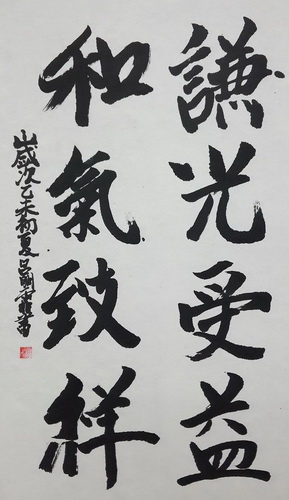 謙光受益
和氣致祥
歲次乙未初夏呂剛